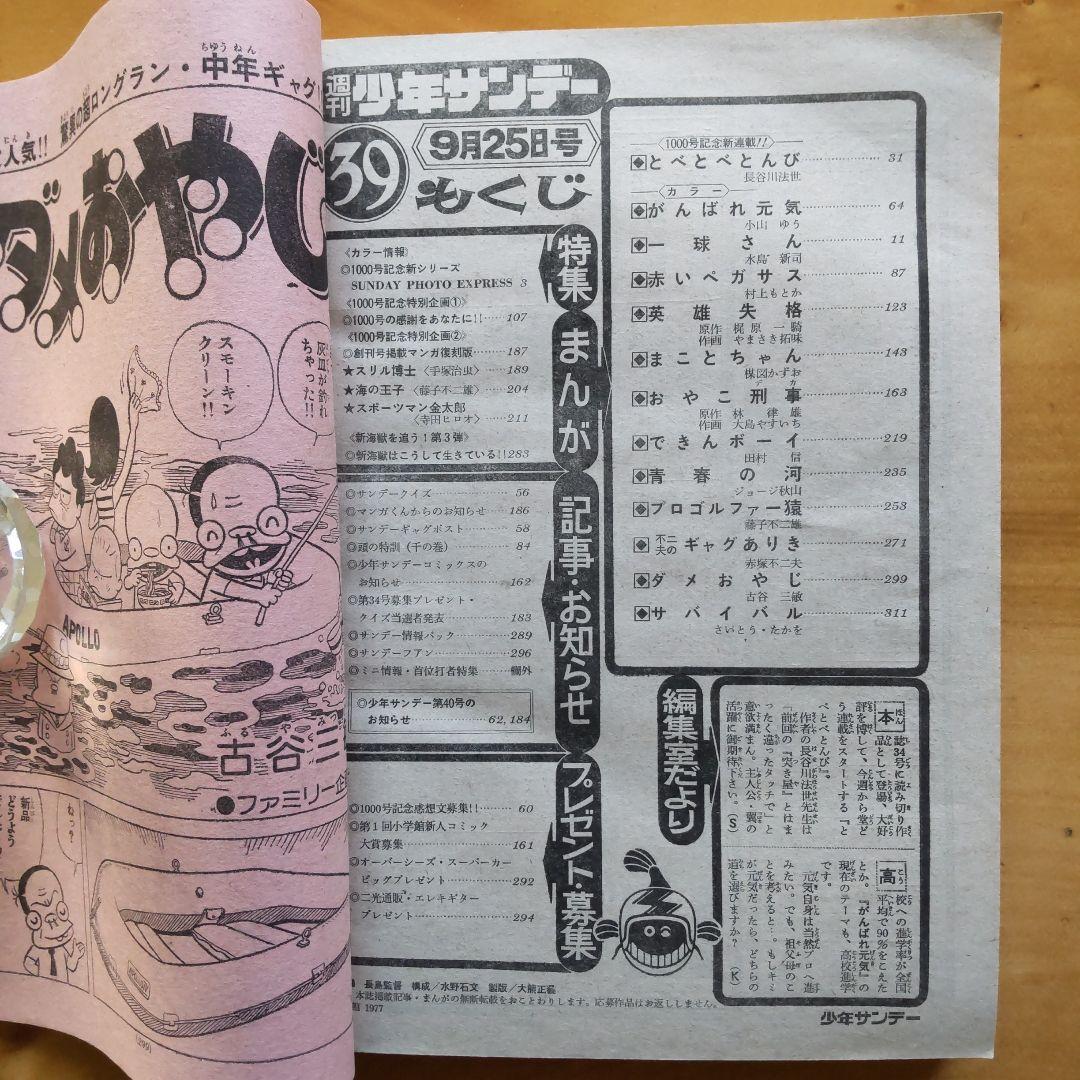 週刊 少年サンデー
39
9月25日号
もくじ
特集
〈カラー情報〉
◎1000号記念新シリーズ
SUNDAY PHOTO EXPRESS 3
《1000号記念特別企画①》
◎1000号の感謝をあなたに!!……107
《1000号記念特別企画②》
◎創刊号掲載マンガ復刻版………187
★スリル博士〈手塚治虫〉……189
★海の王子〈藤子不二雄〉……204
★スポーツマン金太郎
〈寺田ヒロオ〉……211
《新海獣を追う!第3弾》
◎新海獣はこうして生きている!!283
記事・お知らせ
◎サンデークイズ……56
◎マンガくんからのお知らせ……186
◎サンデーギャグポスト……58
◎頭の特訓(千の巻)……84
◎少年サンデーコミックスの
お知らせ……162
◎第34号募集プレゼント・
クイズ当選者発表……183
◎サンデー情報パック……289
◎サンデーフアン……296
◎ミニ情報・首位打者特集……欄外
◎少年サンデー第40号の
お知らせ……62,184
プレゼント・募集
◎1000号記念感想文募集!!……60
◎第1回小学館新人コミック
大賞募集……161
◎オーバーシーズ・スーパーカー
ビッグプレゼント……292
◎二光通販・エレキギター
プレゼント……294
まんが
1000号記念新連載!!
とべとべとんび……31
長谷川法世
カラー
がんばれ元気……64
小山 ゆう
一球さん……11
水島 新司
赤いペガサス……87
村上もとか
英雄失格……123
原作 梶原一騎
作画 やまさき拓味
まことちゃん……143
楳図かずお
デカ
おやこ刑事……163
原作 林 律雄
作画 大島やすいち
できんボーイ……219
田村 信
青春の河……235
ジョージ秋山
プロゴルファー猿……253
藤子不二雄
不二夫のギャグありき……271
赤塚不二夫
ダメおやじ……299
古谷 三敏
サバイバル……311
さいとう・たかを
編集室だより
本誌34号に読み切り作
品として登場、大好
評を博して、今週から堂ど
う連載をスタートする『と
べとべとんび』。
作者の長谷川法世先生は
「前回の『突き屋』とはま
ったく違ったタッチで」と
意欲満まん。主人公・翼の
活躍に御期待下さい。(S)
高校への進学率が全国
平均で90%をこえた
とか。『がんばれ元気』の
現在のテーマも、高校進学
です。
元気自身は当然プロへ進
みたい。でも、祖父母のこ
とを考えると…。もしキミ
が元気だったら、どちらの
道を選びますか?(K)
長島監督 構成/水野石文 製版/大熊正義
本誌掲載記事・まんがの無断転載をおことわりします。応募作品はお返ししません。
1977
少年サンデー
人気!!
驚異の超ロングラン・中年ギャグ
ちゅうねん
ダメおやじ
灰皿が釣れ
ちゃった!!
スモーキン
クリーン!!
APOLLO
古谷三
ふるや みつ
●ファミリー企
ねっ?
新品
どうよう
(299)